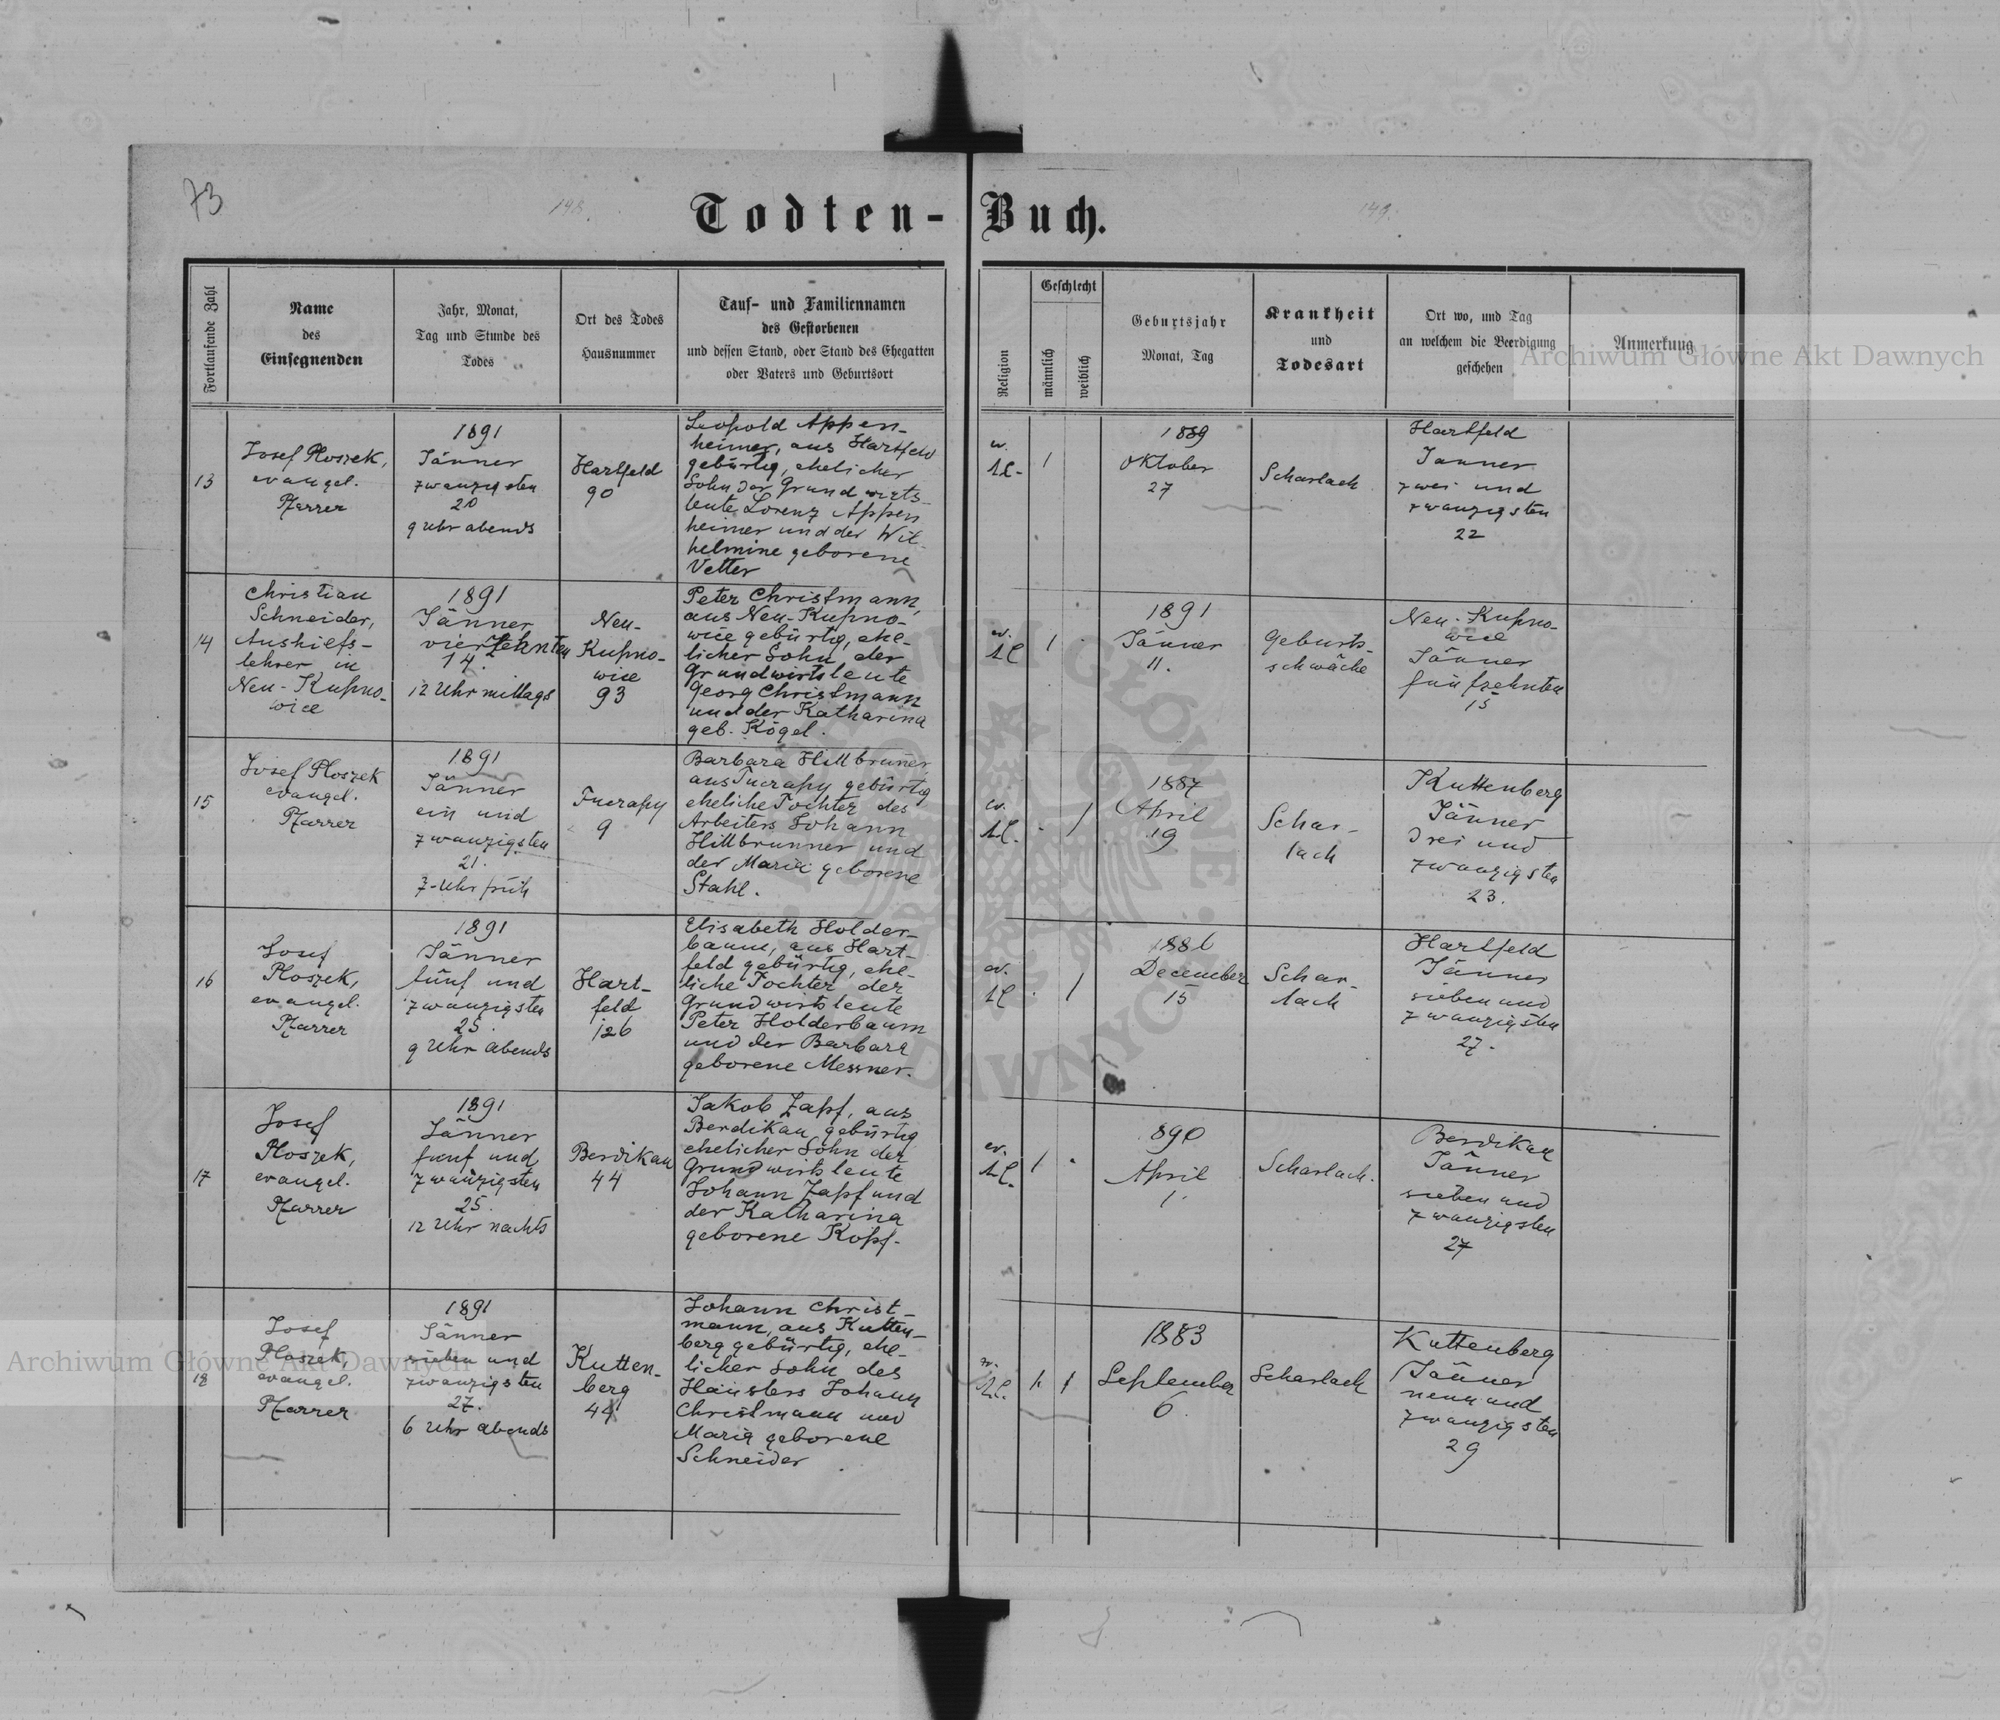 73
148.
149.
Todten-Buch.
Fortlaufende Zahl
Name
des
Einsegnenden
Jahr, Monat,
Tag und Stunde des
Todes
Ort des Todes
Hausnummer
Tauf- und Familiennamen
des Gestorbenen
und dessen Stand, oder Stand des Ehegatten
oder Vaters und Geburtsort
Religion
Geschlecht
männlich
weiblich
Geburtsjahr
Monat, Tag
Krankheit
und
Todesart
Ort wo, und Tag
an welchem die Beerdigung
geschehen
Anmerkung
Archiwum Główne Akt Dawnych
13
Josef Ploszek,
evangel.
Pfarrer
1891
Jänner
zwanzigsten
20
9 Uhr abends
Hartfeld
90
Leopold Appen-
heimer, aus Hartfeld
gebürtig, ehelicher
Sohn der Grundwirts-
leute Lorenz Appen
heimer und der Wil-
helmine geborene
Vetter
ev.
A.C.
1
1889
Oktober
27
Scharlach
Hartfeld
Janner
zwei und
zwanzigsten
22
14
Christian
Schneider,
Aushilfs-
lehrer in
Neu-Kupno-
wice
1891
Jänner
vierzehnten
14.
12 Uhr mittags
Neu-
Kupno-
wice
93
Peter Christmann,
aus Neu-Kupno-
wice gebürtig, ehe-
licher Sohn der
Grundwirtsleute
Georg Christmann
und der Katharina
geb. Kögel.
ev.
A.C
1
1891
Jänner
11.
Geburts-
schwäche
Neu-Kupno-
wice
Jänner
fünfzehnten
15
15
Josef Ploszek
evangel.
Pfarrer
1891
Jänner
ein und
zwanzigsten
21.
7-Uhr früh
Tucrapy
9
Barbara Hillbruner,
aus Tucrapy gebürtig
eheliche Tochter des
Arbeiters Johann
Hillbrunner und
der Maria geborene
Stahl.
ev.
A.C.
1
1887
April
19
Schar-
lach
Kuttenberg
Jänner
drei und
zwanzigsten
23.
16
Josef
Ploszek,
evangel.
Pfarrer
1891
Jänner
fünf und
zwanzigsten
25.
9 Uhr abends
Hart-
feld
126
Elisabeth Holder-
baum, aus Hart-
feld gebürtig, ehe-
liche Tochter der
Grundwirtsleute
Peter Holderbaum
und der Barbara
geborene Messner.
ev.
A.C
1
1886
December
15
Schar-
lach
Hartfeld
Jänner
sieben und
zwanzigsten
27.
17
Josef
Ploszek,
evangel.
Pfarrer
1891
Jänner
fünf und
zwanzigsten
25.
12 Uhr nachts
Berdikau
44
Jakob Zapf, aus
Berdikau gebürtig
ehelicher Sohn der
Grundwirtsleute
Johann Zapf und
der Katharina
geborene Kopf.
ev.
A.C.
1
890
April
1.
Scharlach.
Berdikau
Jänner
sieben und
zwanzigsten
27
18
Josef
Ploszek,
evangel.
Pfarrer
1891
Jänner
sieben und
zwanzigsten
27.
6 Uhr abends
Kutten-
berg
44
Johann Christ-
mann, aus Kutten-
berg gebürtig, ehe-
licher Sohn des
Häuslers Johann
Christmann und
Maria geborene
Schneider
A.C.
1883
September
6
Scharlach
Kuttenberg
Jänner
neun und
zwanzigsten
29
Archiwum Główne Akt Dawnych
GŁÓWNE
DAWNYCH